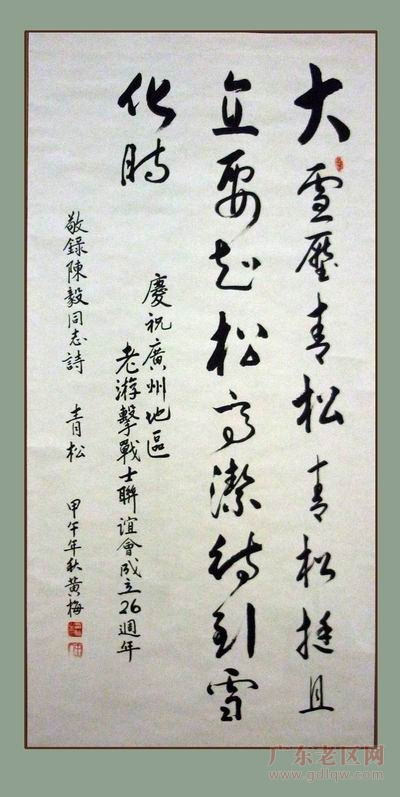 大雪壓青松青松挺且
直要知松高潔待到雪
化時
慶祝廣州地區
老游擊戰士聯誼會成立26週年
敬録陳毅同志詩 青松 甲午年秋黄梅
广东老区网
www.gdlqw.com